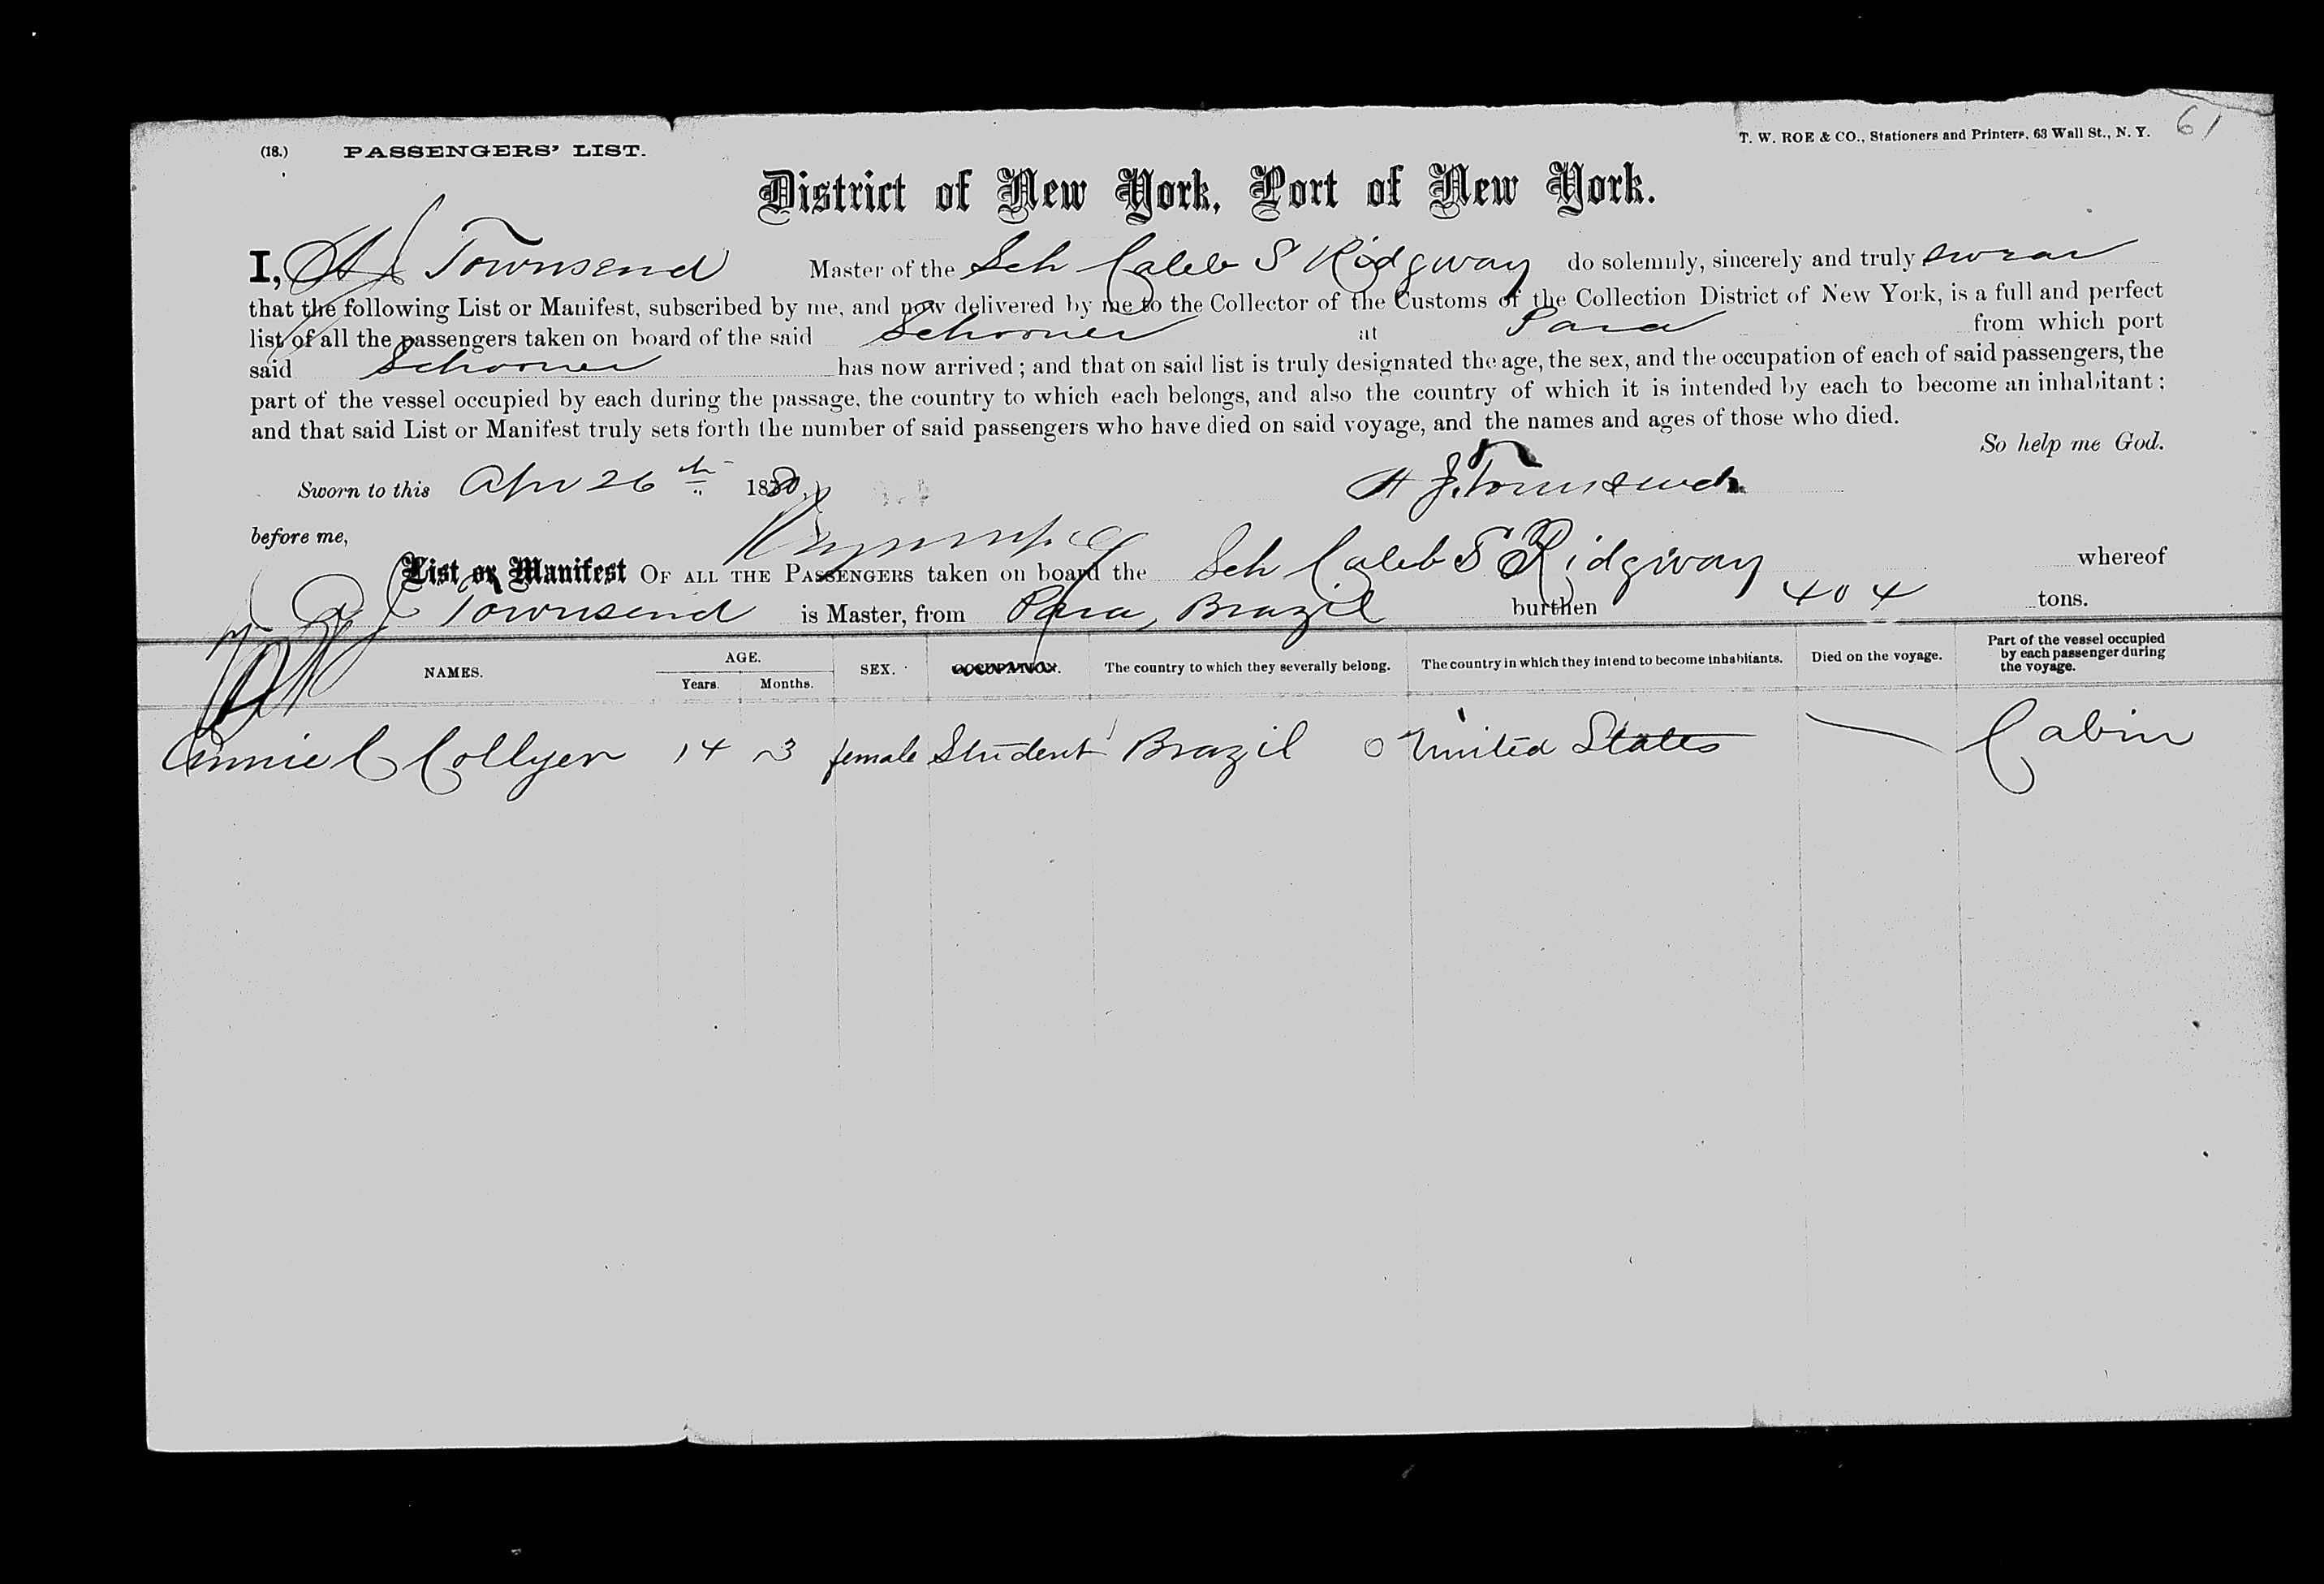 61
(18.) PASSENGERS' LIST. T. W. ROE & CO., Stationers and Printers, 63 Wall St., N. Y.
District of New York, Port of New York.
I, H J Townsend Master of the Sch Caleb S Ridgway do solemnly, sincerely and truly swear
that the following List or Manifest, subscribed by me, and now delivered by me to the Collector of the Customs of the Collection District of New York, is a full and perfect
list of all the passengers taken on board of the said Schooner at Para from which port
said Schooner has now arrived; and that on said list is truly designated the age, the sex, and the occupation of each of said passengers, the
part of the vessel occupied by each during the passage, the country to which each belongs, and also the country of which it is intended by each to become an inhabitant;
and that said List or Manifest truly sets forth the number of said passengers who have died on said voyage, and the names and ages of those who died.
So help me God.
Sworn to this Apr 26th 1880. H J Townsend
before me,
List or Manifest OF ALL THE PASSENGERS taken on board the Sch Caleb S Ridgway whereof
H J Townsend is Master, from Para, Brazil burthen 404 tons.
NAMES. AGE. Years. Months. SEX. OCCUPATION. The country to which they severally belong. The country in which they intend to become inhabitants. Died on the voyage. Part of the vessel occupied by each passenger during the voyage.
Annie C Collyer 14 3 female Student Brazil United States — Cabin